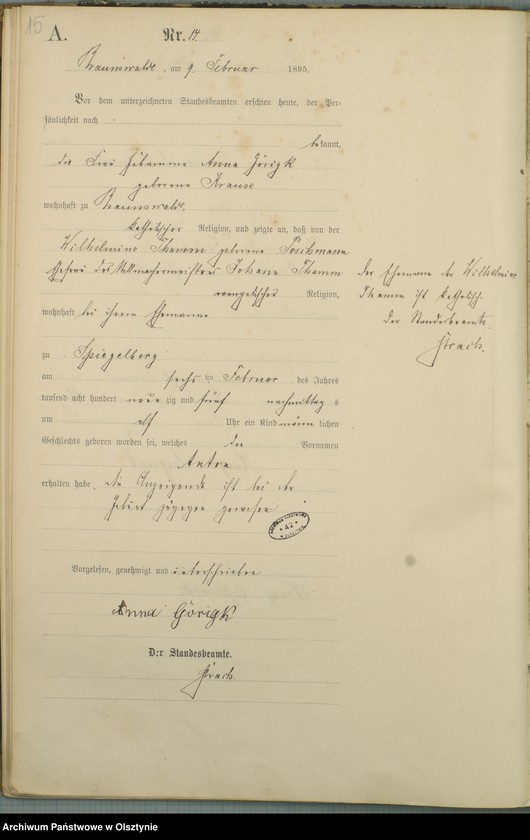 15
A.
Nr. 14.
Braunswalde, am 9. Februar 1895.
Vor dem unterzeichneten Standesbeamten erschien heute, der Per-
sönlichkeit nach
bekannt,
die Frau Hebamme Anna Görigk
geborene Krause
wohnhaft zu Braunswalde,
katholischer Religion, und zeigte an, daß von der
Wilhelmine Thamm geborene Poschmann
Ehefrau des Johann Thamm
evangelischer Religion,
wohnhaft bei ihrem Ehemanne
zu Spiegelberg
am sechs ten Februar des Jahres
tausend acht hundert neun zig und fünf nachmittag s
um elf Uhr ein Kind männ lichen
Geschlechts geboren worden sei, welches den Vornamen
Anton
erhalten habe. Die Anzeigende ist bei der
Geburt zugegen gewesen
42
Vorgelesen, genehmigt und unterschrieben
Anna Görigk
Der Standesbeamte.
Der Ehemann der Wilhelmine
Thamm ist katholisch.
Der Standesbeamte
Archiwum Państwowe w Olsztynie